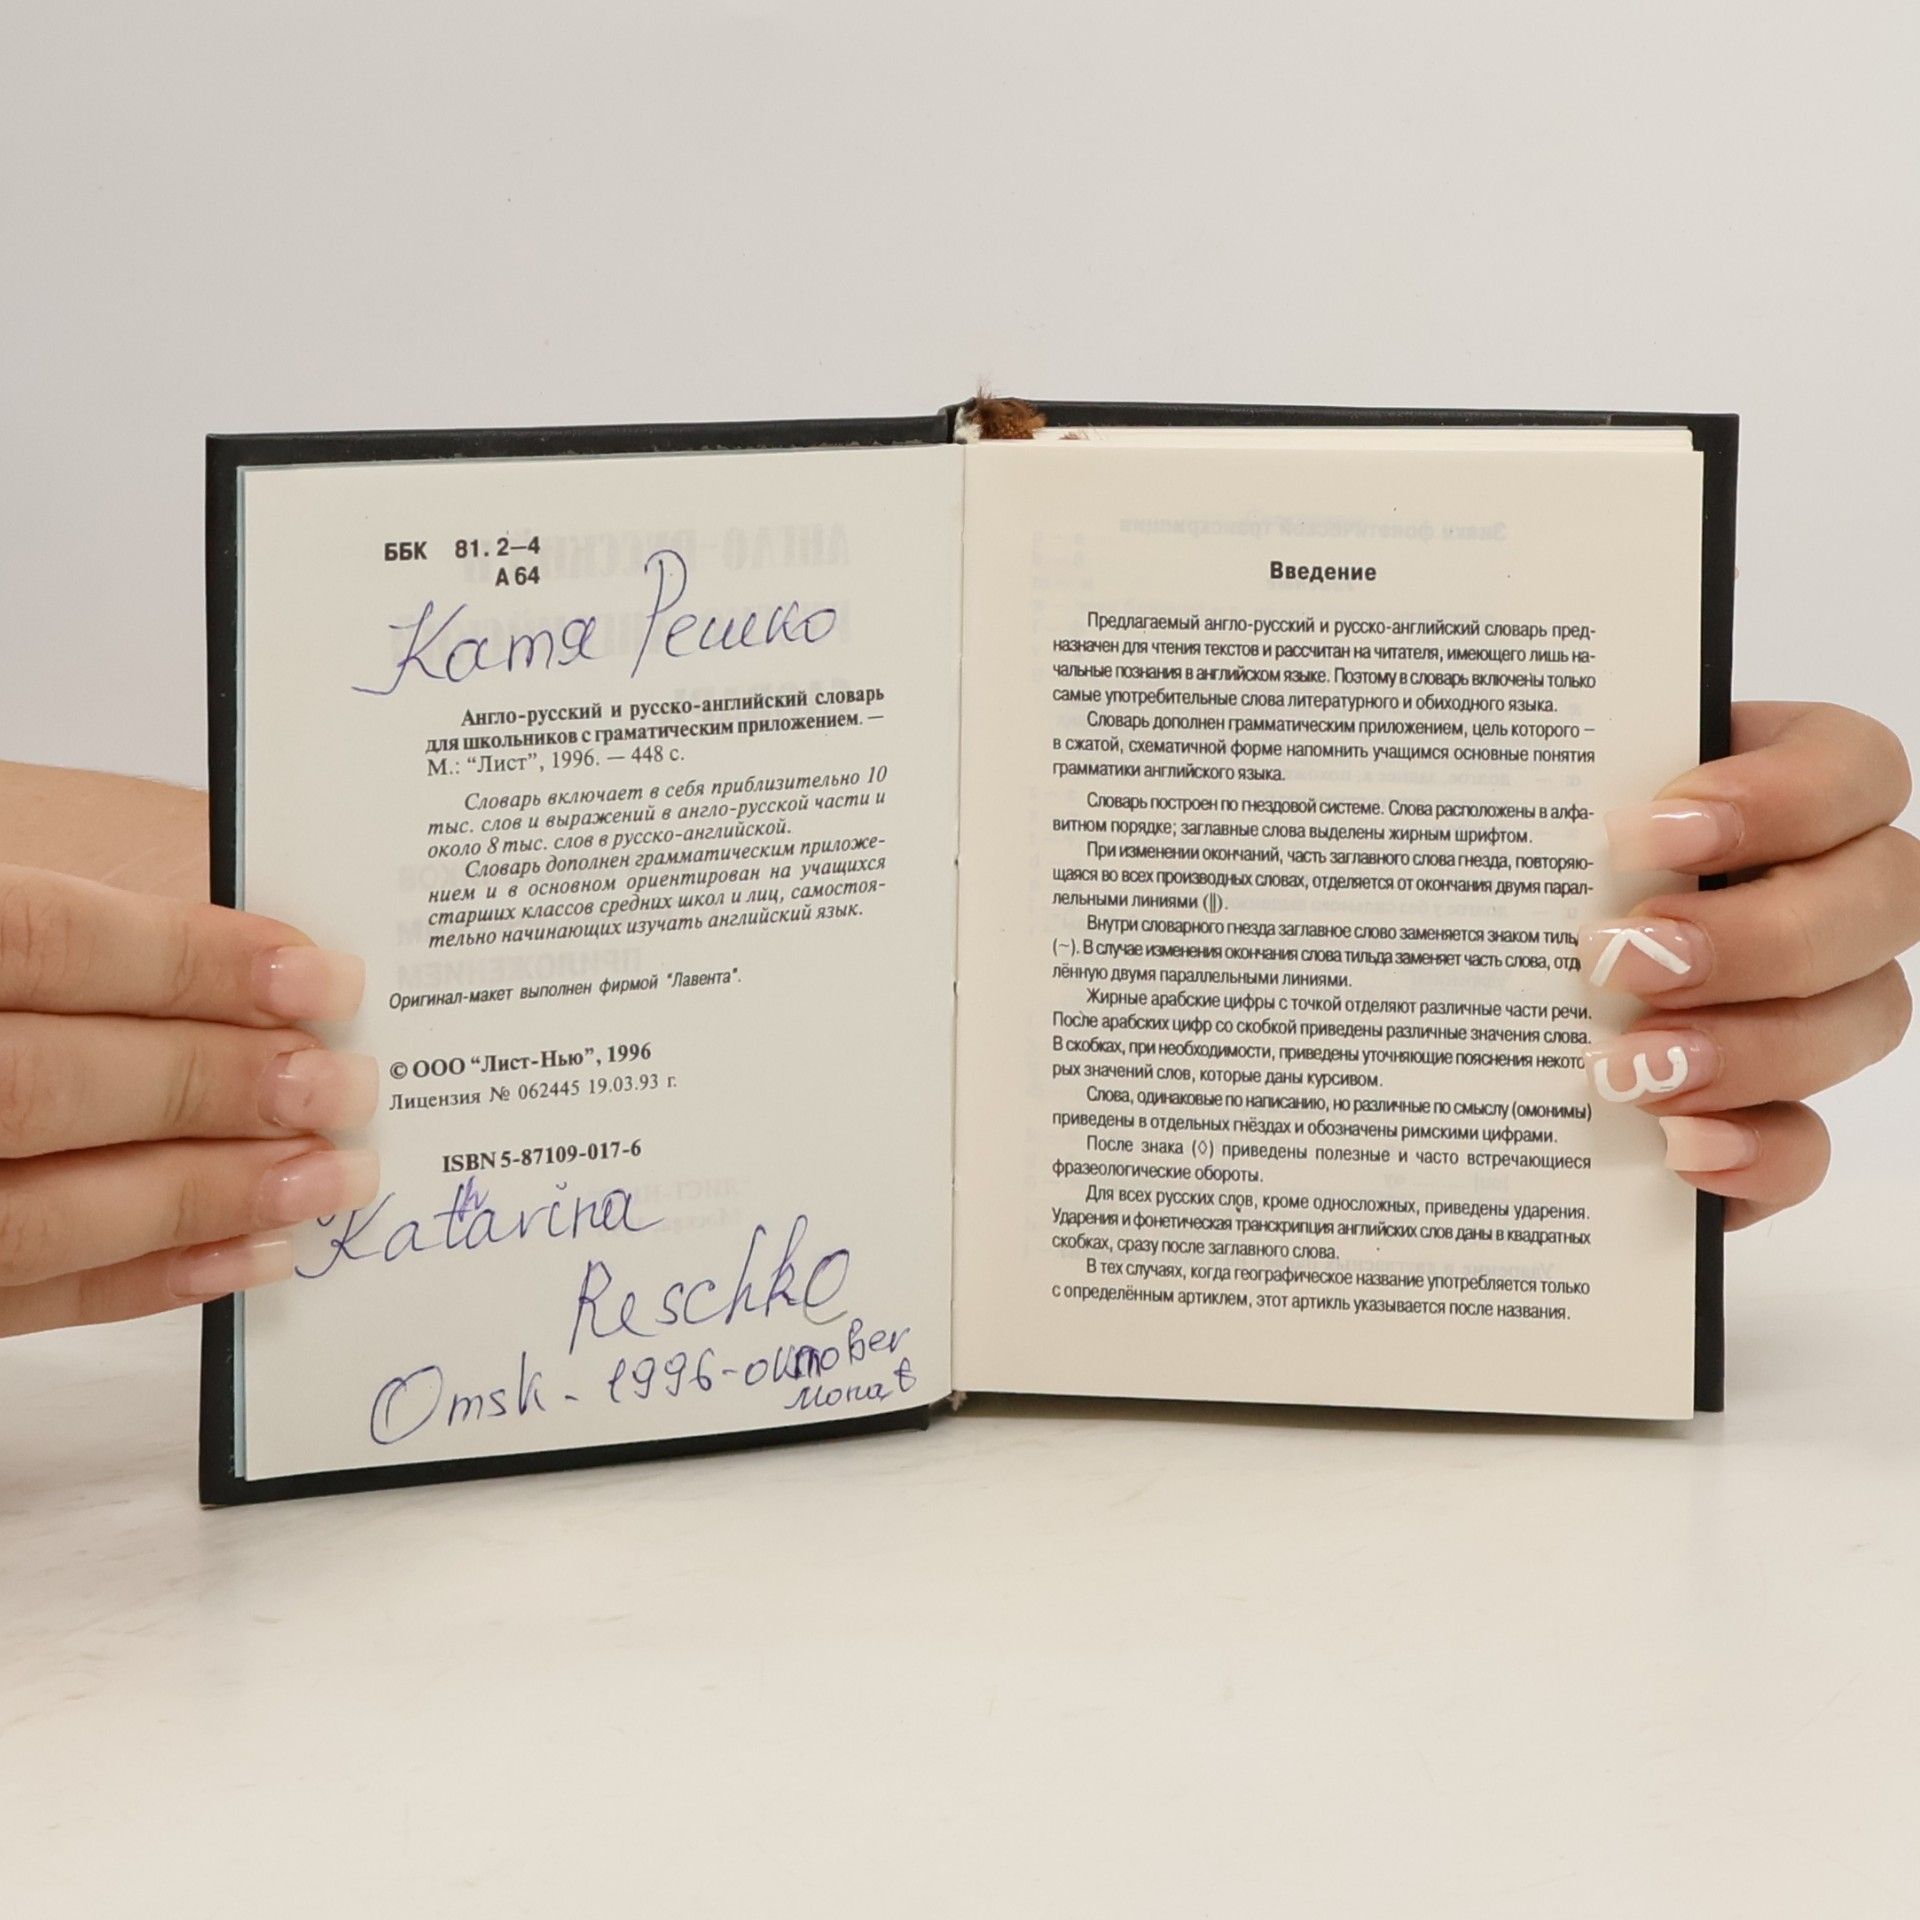 ББК 81.2–4
А 64
Катя Решко
Англо-русский и русско-английский словарь
для школьников с граматическим приложением. —
М.: “Лист”, 1996. — 448 с.
Словарь включает в себя приблизительно 10
тыс. слов и выражений в англо-русской части и
около 8 тыс. слов в русско-английской.
Словарь дополнен грамматическим приложе-
нием и в основном ориентирован на учащихся
старших классов средних школ и лиц, самостоя-
тельно начинающих изучать английский язык.
Оригинал-макет выполнен фирмой "Лавента".
© ООО “Лист-Нью”, 1996
Лицензия № 062445 19.03.93 г.
ISBN 5-87109-017-6
Katharina
Reschke
Omsk - 1996 - october
Monat
Введение
Предлагаемый англо-русский и русско-английский словарь пред-
назначен для чтения текстов и рассчитан на читателя, имеющего лишь на-
чальные познания в английском языке. Поэтому в словарь включены только
самые употребительные слова литературного и обиходного языка.
Словарь дополнен грамматическим приложением, цель которого –
в сжатой, схематичной форме напомнить учащимся основные понятия
грамматики английского языка.
Словарь построен по гнездовой системе. Слова расположены в алфа-
витном порядке; заглавные слова выделены жирным шрифтом.
При изменении окончаний, часть заглавного слова гнезда, повторяю-
щаяся во всех производных словах, отделяется от окончания двумя парал-
лельными линиями (||).
Внутри словарного гнезда заглавное слово заменяется знаком тиль
(~). В случае изменения окончания слова тильда заменяет часть слова, отд
лённую двумя параллельными линиями.
Жирные арабские цифры с точкой отделяют различные части речи.
После арабских цифр со скобкой приведены различные значения слова.
В скобках, при необходимости, приведены уточняющие пояснения некото
рых значений слов, которые даны курсивом.
Слова, одинаковые по написанию, но различные по смыслу (омонимы)
приведены в отдельных гнёздах и обозначены римскими цифрами.
После знака (◊) приведены полезные и часто встречающиеся
фразеологические обороты.
Для всех русских слов, кроме односложных, приведены ударения.
Ударения и фонетическая транскрипция английских слов даны в квадратных
скобках, сразу после заглавного слова.
В тех случаях, когда географическое название употребляется только
с определённым артиклем, этот артикль указывается после названия.